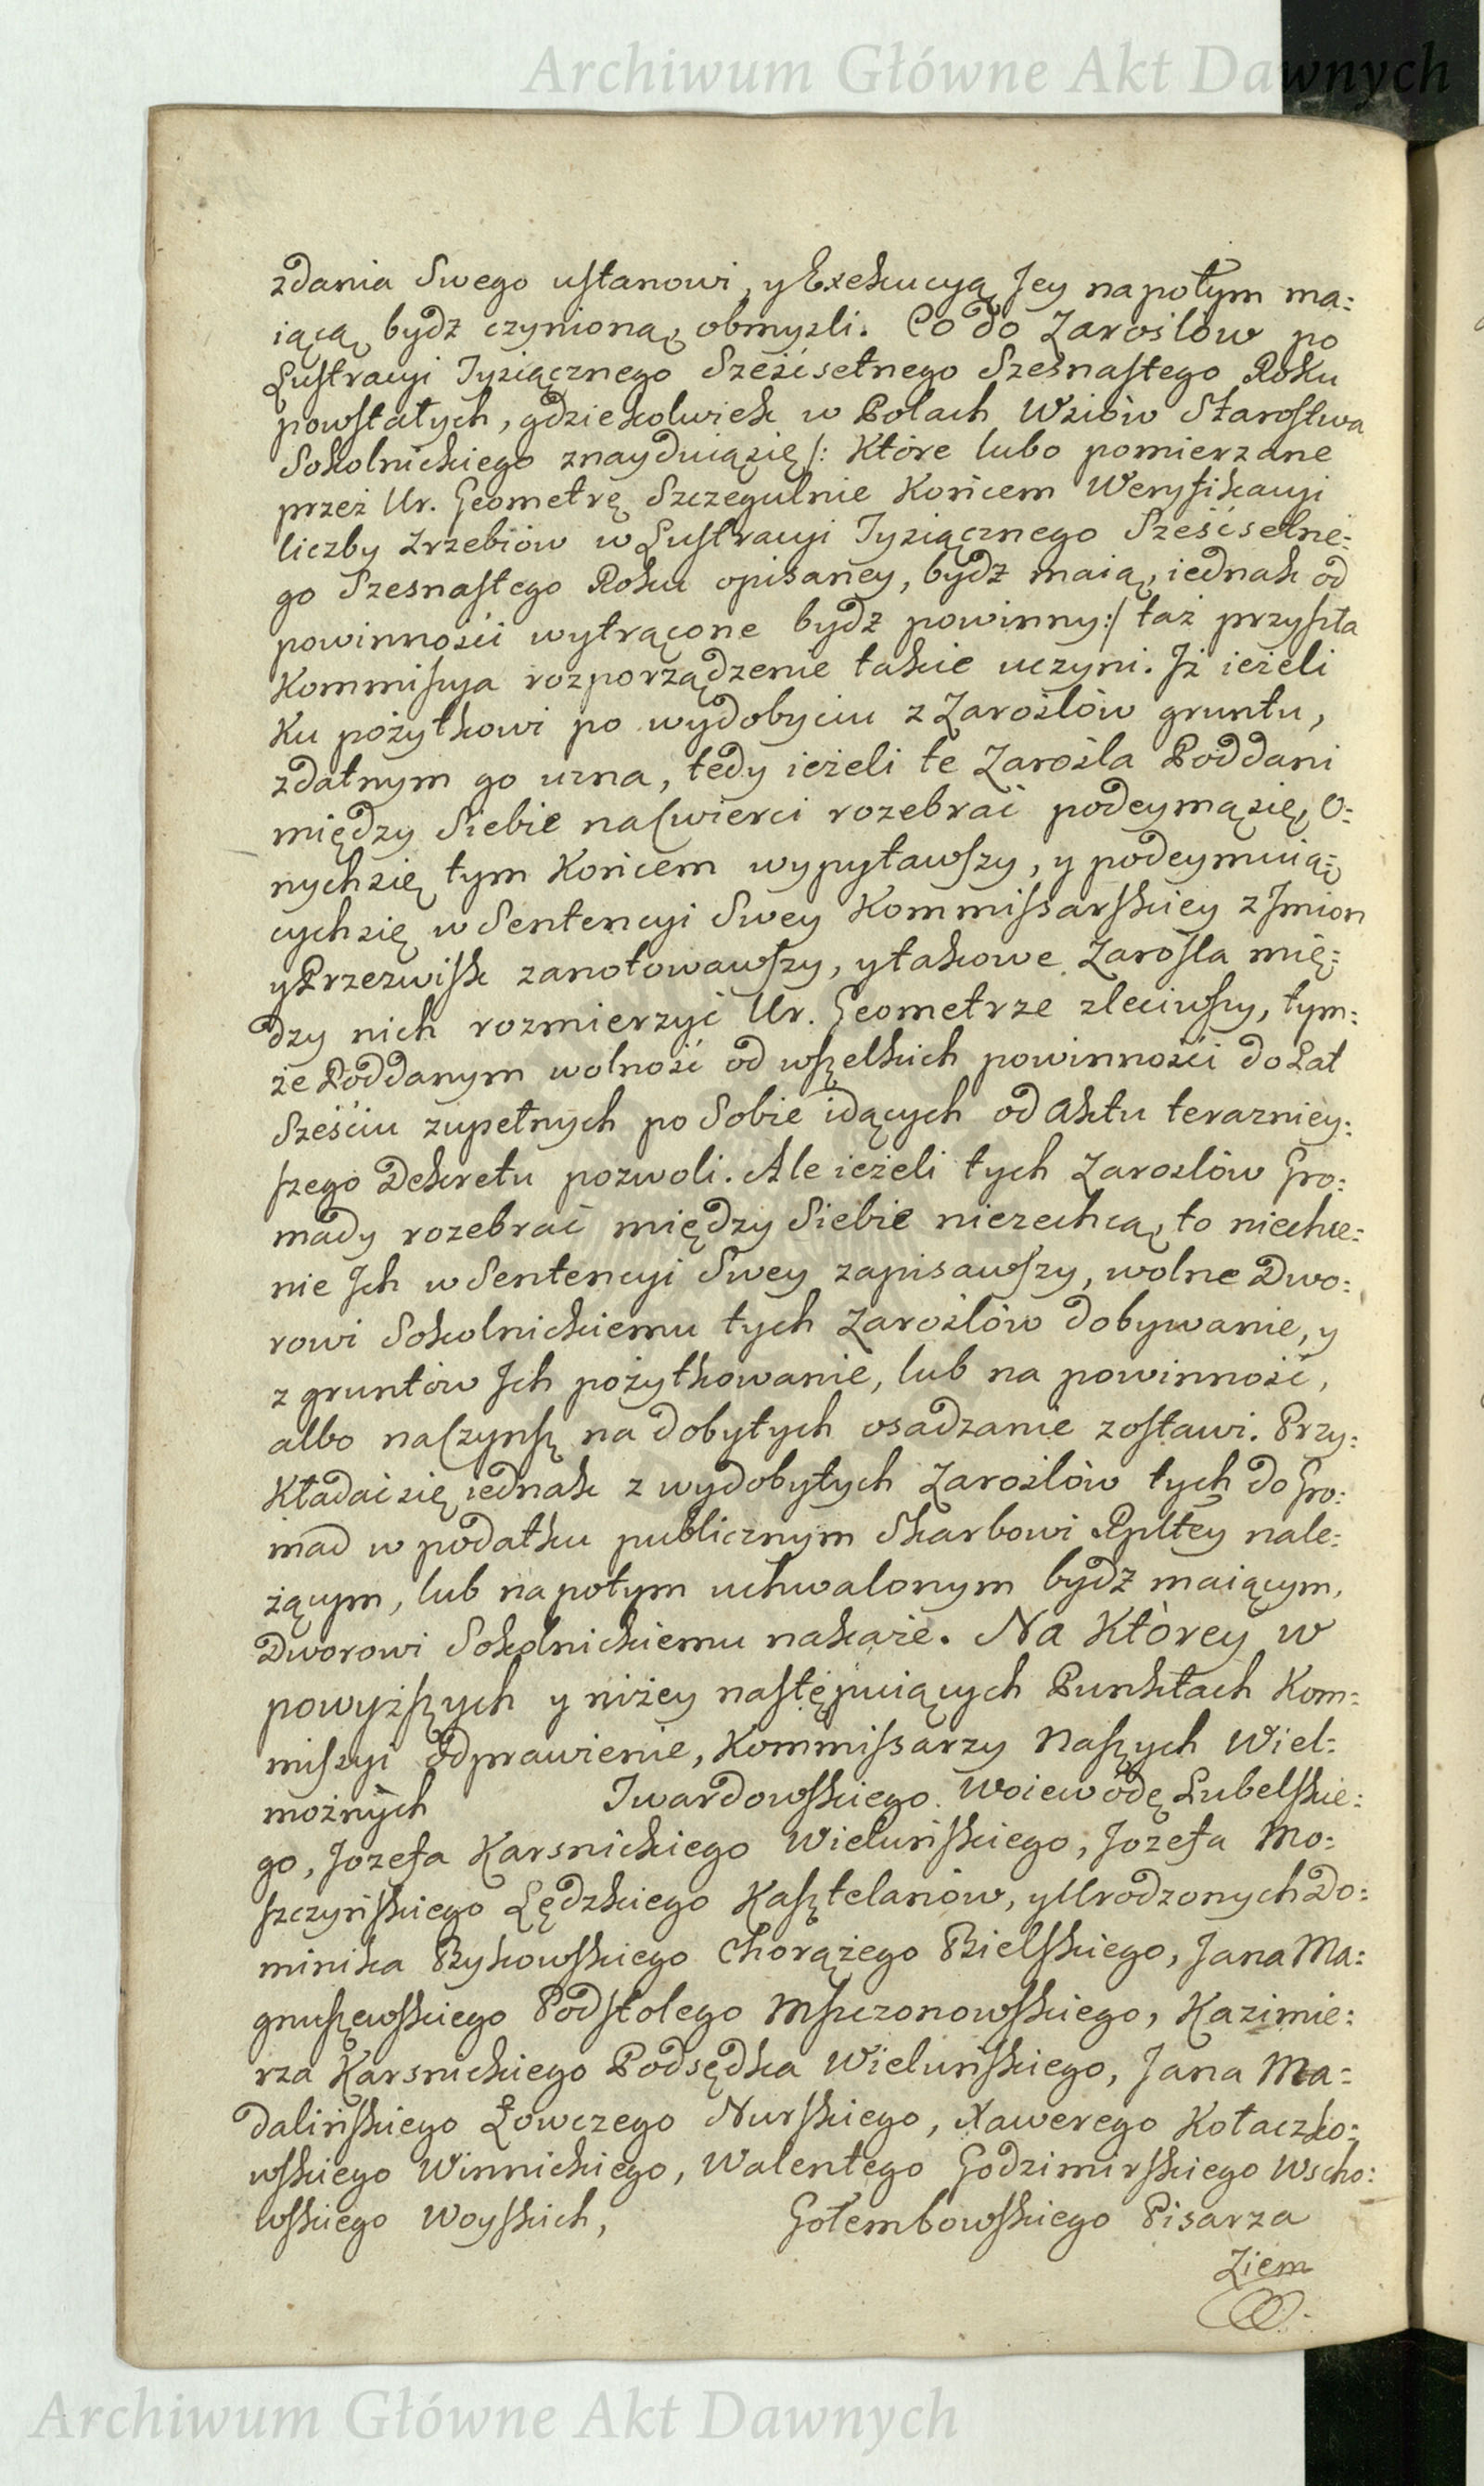 Archiwum Główne Akt Dawnych
zdania Swego ustanowi, y Exekucyą Jey napotym ma:
iącą bydz czynioną, obmysli. Co do Zaroslow po
Lustracyi Tysiącznego Sześćsetnego Szesnastego Roku
powstałych, gdziekolwiek w Polach Wsiów Starostwa
Sokolnickiego znayduiąsię /: Które lubo pomierzane
przez Ur. Geometrę Szczegulnie Końcem Weryfikacyi
liczby Zrzebiow w Lustracyi Tysiącznego Sześćsetne:
go Szesnastego Roku opisaney, bydz maią, iednak od
powinności wytrącone bydz powinny :/ taż przyszła
Kommissya rozporządzenie takie uczyni. Iż ieżeli
Ku pożytkowi po wydobyciu z Zaroślów gruntu,
zdatnym go uzna, tedy ieżeli te Zarośla Poddani
między Siebie na Cwierci rozebrać podeymąsię, O:
nychsię tym Końcem wypytawszy, y podeymuią:
cychsię w Sentencyi Swey Kommissarskiey z Jmion
y Przezwisk zanotowawszy, y takowe Zarosla mię:
dzy nich rozmierzyć Ur. Geometrze zleciwszy, tym:
że Poddanym wolność od wszelkich powinności do Lat
Sześciu zupełnych po Sobie idących od Aktu terazniey:
szego Dekretu pozwoli. Ale ieżeli tych Zaroslów Gro:
mady rozebrać między Siebie niezechcą, to niechce:
nie Jch w Sentencyi Swey zapisawszy, wolne Dwo:
rowi Sokolnickiemu tych Zaroślów dobywanie, y
z gruntów Jch pożytkowanie, lub na powinność,
albo na Czynsz na dobytych osadzanie zostawi. Przy:
Kładać się iednak z wydobytych Zaroślów tych do Gro:
mad w podatku publicznym Skarbowi Rpltey nale:
żącym, lub napotym uchwalonym bydz maiącym,
Dworowi Sokolnickiemu nakaże. Na Którey w
powyższych y niżey następuiących Punktach Kom:
missyi odprawienie, Kommissarzy Naszych Wiel:
możnych Twardowskiego Woiewodę Lubelskie:
go, Jozefa Karsnickiego Wieluńskiego, Jozefa Mo:
szczyńskiego Lędzkiego Kasztelanów, y Urodzonych Do:
minika Rykowskiego Chorążego Bielskiego, Jana Ma:
gnuszewskiego Podstolego Mszczonowskiego, Kazimie:
rza Karsnickiego Podsędka Wieluńskiego, Jana Ma:
dalińskiego Łowczego Nurskiego, Xawerego Kołaczko:
wskiego Winnickiego, Walentego Godzimirskiego Wscho:
wskiego Woyskich, Gołembowskiego Pisarza
Ziem
Archiwum Główne Akt Dawnych